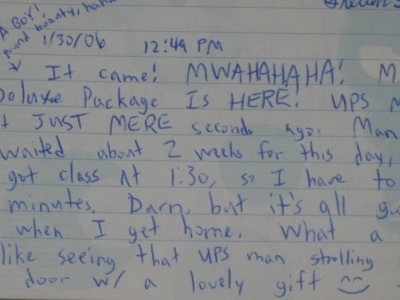 A BOY!
1/30/06 12:49 PM
It came! MWAHAHAHA! M
Deluxe Package IS HERE! UPS M
JUST MERE seconds ago. Man
waited about 2 weeks for this day,
got class at 1:30, so I have to
minutes. Darn, but it's all
when I get home. What a
like seeing that UPS man strolling
door w/ a lovely gift